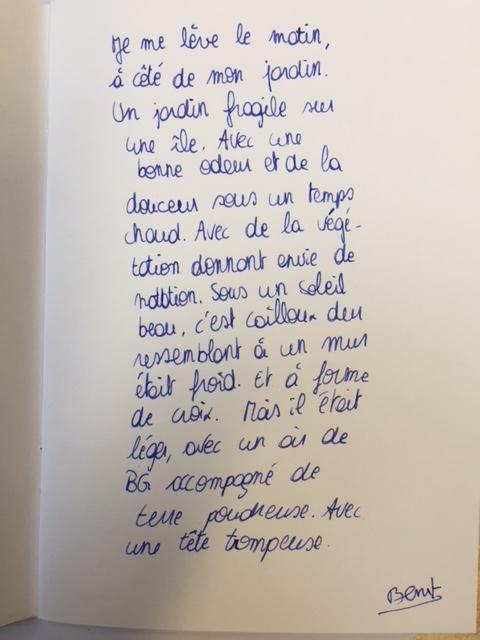 Je me lève le matin,
à côté de mon jardin.
Un jardin fragile sur
une île. Avec une
bonne odeur et de la
douceur sous un temps
chaud. Avec de la végé-
tation donnant envie de
. Sous un soleil
beau, c'est cailloux dur
ressemblant à un mur
était froid. Et à forme
de croix. Mais il était
léger, avec un air de
BG accompagné de
terre poudreuse. Avec
une tête trompeuse.